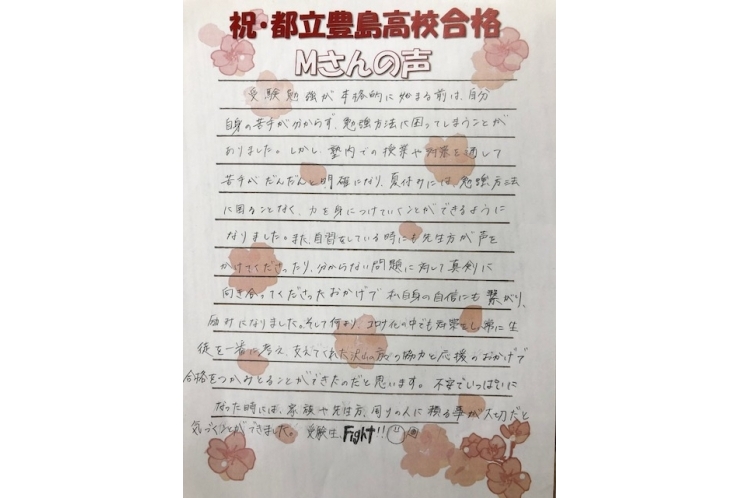 祝・都立豊島高校合格
Mさんの声
受験勉強が本格的に始まる前は、自分
自身の苦手が分からず、勉強方法に困ってしまうことが
ありました。しかし、塾内での授業や対策を通して
苦手がだんだんと明確になり、夏休みには、勉強方法
に困ることなく、力を身につけていくことができるように
なりました。また、自習をしている時にも先生方が声を
かけてくださったり、分からない問題に対して真剣に
向き合ってくださったおかげで私自身の自信にも繋がり、
励みになりました。そして何より、コロナ化の中でも対策をし、常に生
徒を一番に考え、支えてくれた沢山の方々の協力と応援のおかげで
合格をつかみとることができたのだと思います。不安でいっぱいに
なった時には、家族や先生方、周りの人に頼る事が大切だと
気づくことができました。受験生、Fight!!